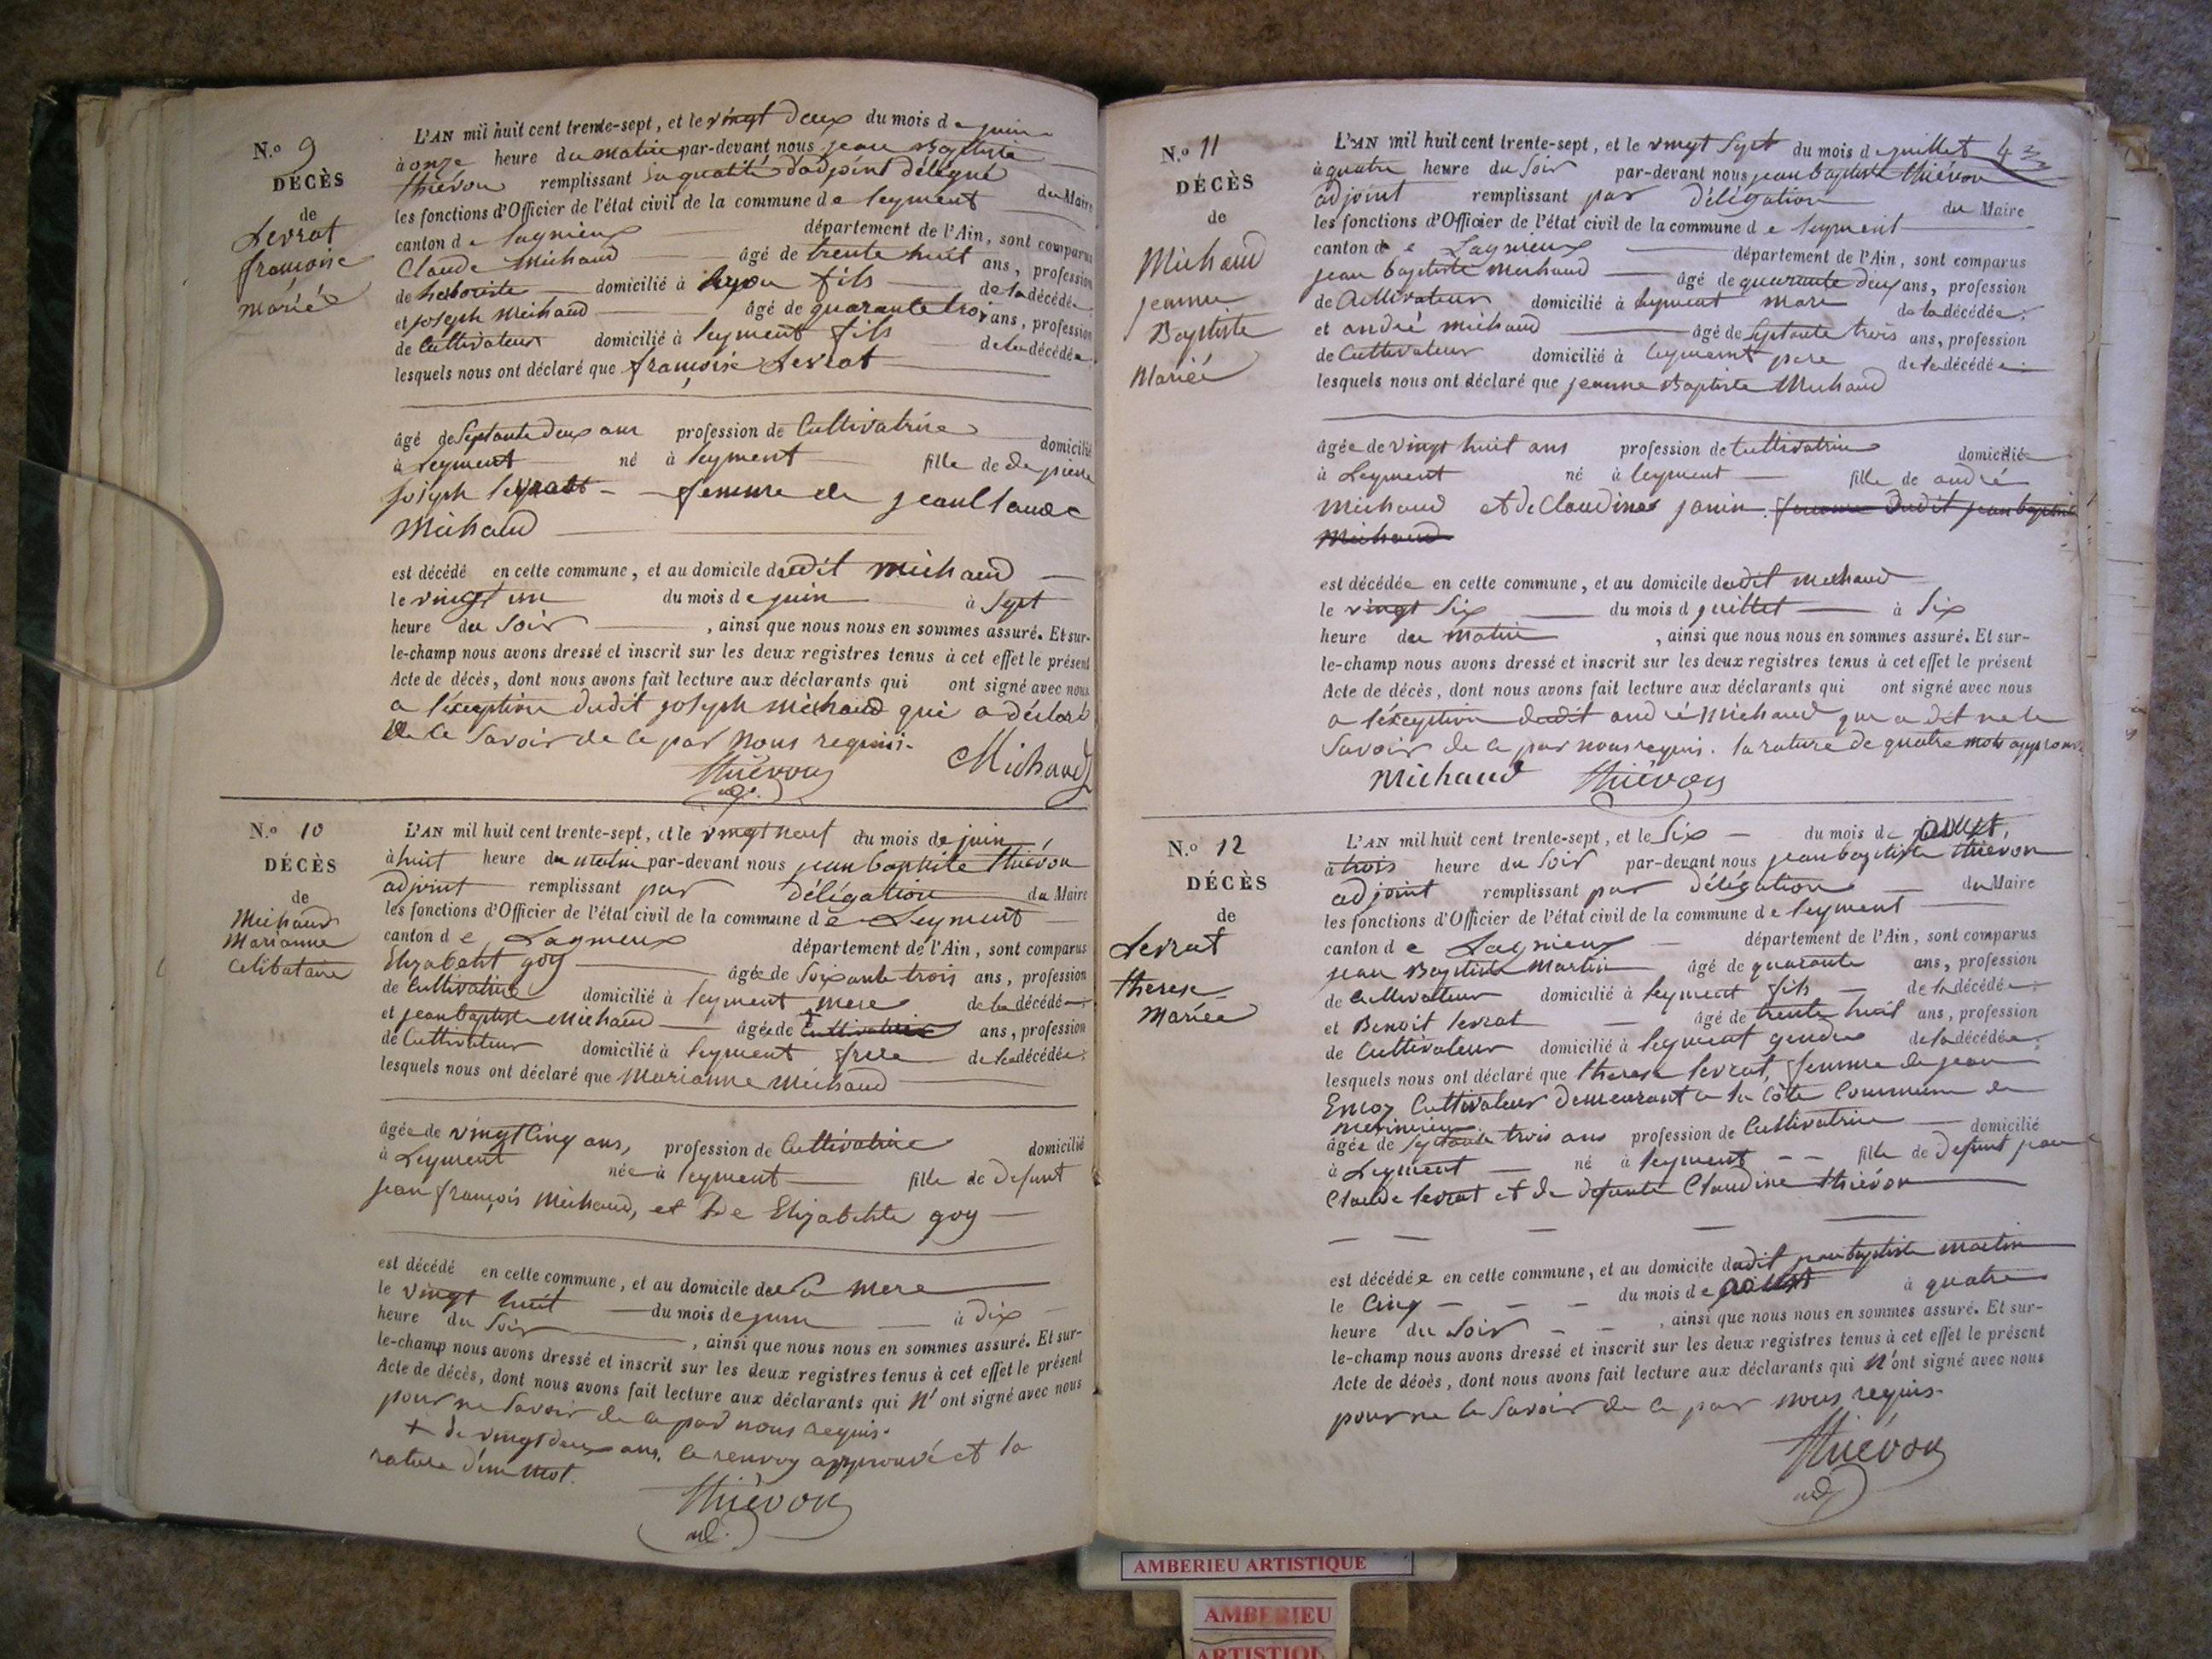 N.o 9
DÉCÈS
de
Levrat
françoise
mariée
L'AN mil huit cent trente-sept, et le vingt deux du mois de juin
à onze heure du matin par-devant nous jean Baptiste
thiévon remplissant sa qualité d'adjoint délégué du Maire
les fonctions d'Officier de l'état civil de la commune de leyment
canton de lagnieux département de l'Ain, sont comparus
Claude Michaud âgé de trente huit ans, profession
de domicilié à lyon fils de la décédée
et joseph Michaud âgé de quarante trois ans, profession
de Cultivateur domicilié à leyment fils de la décédée
lesquels nous ont déclaré que françoise Levrat
âgé de Septante deux ans profession de Cultivatrice domicilié
à Leyment né à leyment fille de de pierre
joseph levrat femme de jean Claude
Michaud
est décédé en cette commune, et au domicile dudit michaud
le vingt un du mois de juin à Sept
heure du Soir, ainsi que nous nous en sommes assuré. Et sur-
le-champ nous avons dressé et inscrit sur les deux registres tenus à cet effet le présent
Acte de décès, dont nous avons fait lecture aux déclarants qui ont signé avec nous
a l'éxception dudit joseph michaud qui a déclaré
ne le Savoir de ce par nous requis.
Thiévon Michaud
adj.
N.o 10
DÉCÈS
de
Michaud
Marianne
Celibataire
L'AN mil huit cent trente-sept, et le vingt neuf du mois de juin
à huit heure du matin par-devant nous jean baptiste thiévon
adjoint remplissant par délégation du Maire
les fonctions d'Officier de l'état civil de la commune de Leyment
canton de Lagnieux département de l'Ain, sont comparus
Elizabeht goy âgée de Soixante trois ans, profession
de Cultivatrice domicilié à leyment mere de la décédé
et jean baptiste Michaud âgée de + Cultivatrice ans, profession
de Cultivateur domicilié à leyment frere de la décédée
lesquels nous ont déclaré que Marianne Michaud
âgée de vingt Cinq ans, profession de Cultivatrice domicilié
à Leyment née à leyment fille de defunt
jean françois Michaud, et de Elizabehte goy
est décédé en cette commune, et au domicile de Sa mere
le vingt huit du mois de juin à dix
heure du Soir, ainsi que nous nous en sommes assuré. Et sur-
le-champ nous avons dressé et inscrit sur les deux registres tenus à cet effet le présent
Acte de décès, dont nous avons fait lecture aux déclarants qui n'ont signé avec nous
pour ne Savoir de ce par nous requis.
+ de vingt deux ans, le renvoy approuvé et la
rature d'un mot.
Thiévon
adj.
N.o 11
DÉCÈS
de
Michaud
jeanne
Baptiste
Mariée
L'AN mil huit cent trente-sept, et le vingt Sept du mois de juillet
à quatre heure du Soir par-devant nous jean baptiste thiévon
adjoint remplissant par délégation du Maire
les fonctions d'Officier de l'état civil de la commune de leyment
canton de Lagnieux département de l'Ain, sont comparus
jean baptiste Michaud âgé de quarante deux ans, profession
de Cultivateur domicilié à leyment mari de la décédée
et andré michaud âgé de Septante trois ans, profession
de Cultivateur domicilié à leyment pere de la décédée
lesquels nous ont déclaré que jeanne Baptiste Michaud
âgée de vingt huit ans profession de Cultivatrice domicilié
à Leyment né à leyment fille de andré
Michaud et de Claudine janin femme dudit jean baptiste
Michaud
est décédée en cette commune, et au domicile dudit michaud
le vingt Six du mois d juillet à Six
heure du Matin, ainsi que nous nous en sommes assuré. Et sur-
le-champ nous avons dressé et inscrit sur les deux registres tenus à cet effet le présent
Acte de décès, dont nous avons fait lecture aux déclarants qui ont signé avec nous
a l'éxception dudit andré Michaud qui a dit ne le
Savoir de ce par nous requis. la rature de quatre mots approuvé
Michaud Thiévon
N.o 12
DÉCÈS
de
Levrat
therese
Mariée
L'AN mil huit cent trente-sept, et le Six du mois de aoust,
à trois heure du Soir par-devant nous jean baptiste thiévon
adjoint remplissant par délégation du Maire
les fonctions d'Officier de l'état civil de la commune de leyment
canton de Lagnieux département de l'Ain, sont comparus
jean Baptiste Martin âgé de quarante ans, profession
de Cultivateur domicilié à leyment fils de la décédée
et Benoit levrat âgé de trente huit ans, profession
de Cultivateur domicilié à leyment gendre de la décédée
lesquels nous ont déclaré que therese levrat, femme de jean
Cultivateur demeurant a la Côte Commune de
âgée de Septante trois ans profession de Cultivatrice domicilié
à Leyment né à leyment fille de defunt jean
Claude levrat et de defunte Claudine thiévon
est décédée en cette commune, et au domicile dudit jean baptiste martin
le Cinq du mois de aoust à quatre
heure du Soir, ainsi que nous nous en sommes assuré. Et sur-
le-champ nous avons dressé et inscrit sur les deux registres tenus à cet effet le présent
Acte de décès, dont nous avons fait lecture aux déclarants qui n'ont signé avec nous
pour ne le Savoir de ce par nous requis.
Thiévon
adj
AMBERIEU ARTISTIQUE
AMBERIEU
ARTISTIQU